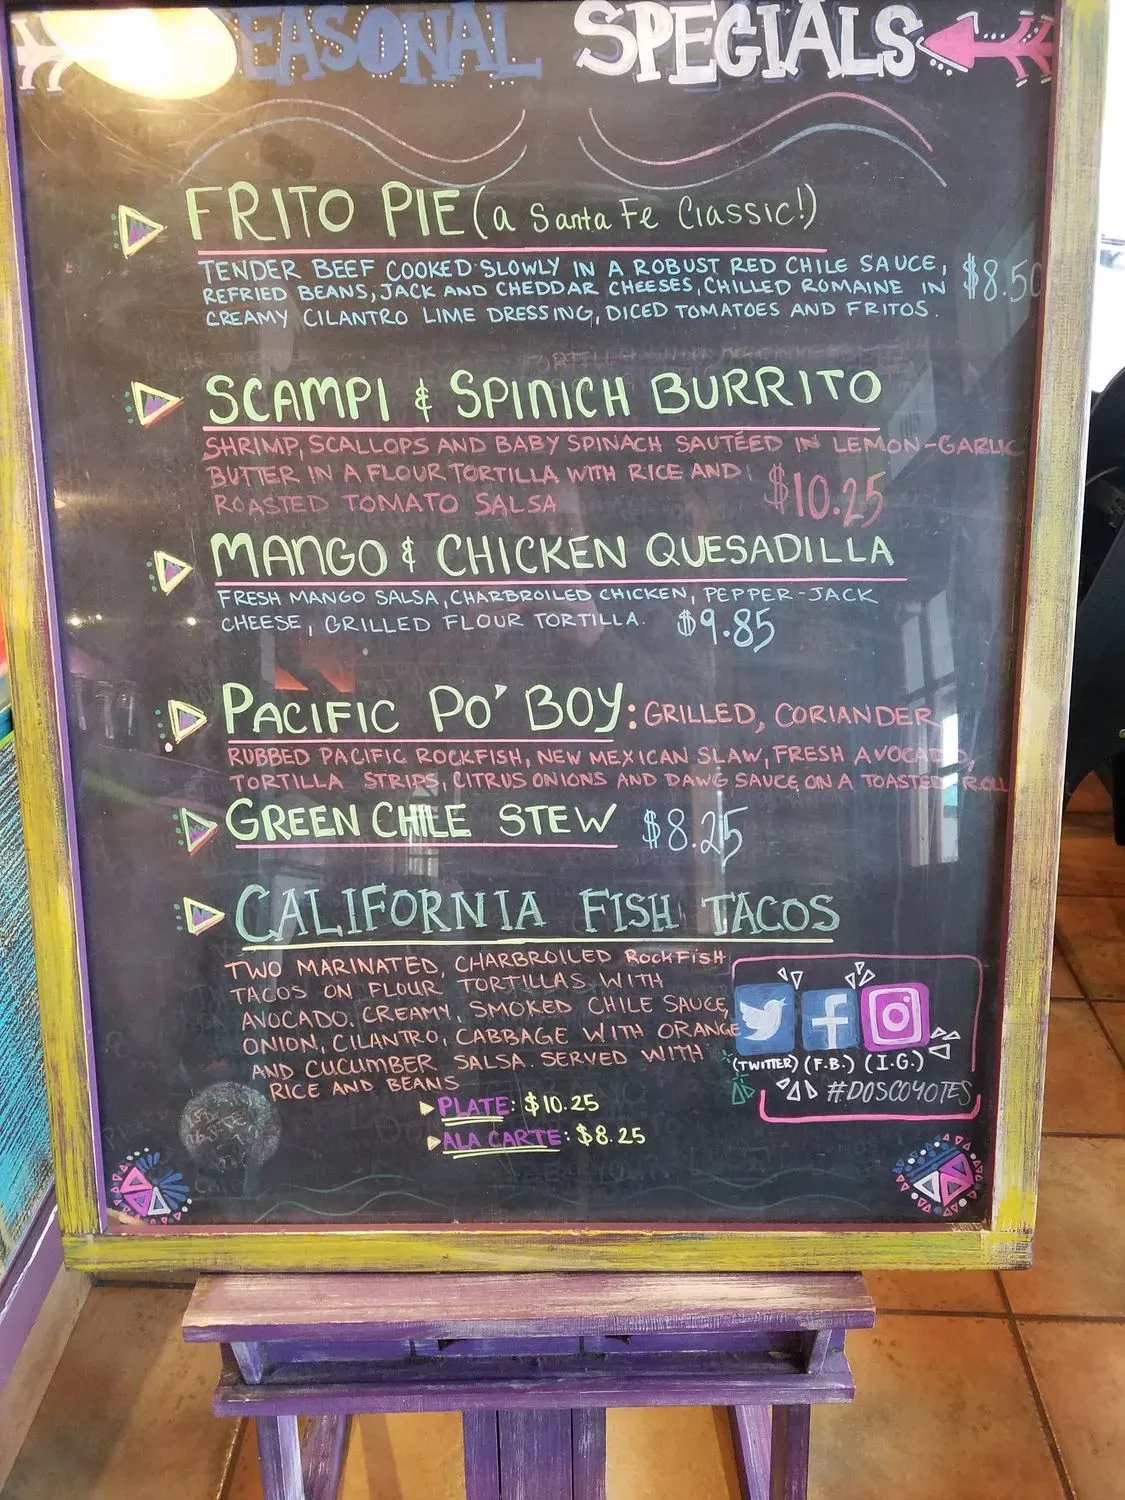 SEASONAL SPECIALS
FRITO PIE (a Santa Fe Classic!)
TENDER BEEF COOKED SLOWLY IN A ROBUST RED CHILE SAUCE, $8.50
REFRIED BEANS, JACK AND CHEDDAR CHEESES, CHILLED ROMAINE IN
CREAMY CILANTRO LIME DRESSING, DICED TOMATOES AND FRITOS.
SCAMPI & SPINICH BURRITO
SHRIMP, SCALLOPS AND BABY SPINACH SAUTÉED IN LEMON-GARLIC
BUTTER IN A FLOUR TORTILLA WITH RICE AND
ROASTED TOMATO SALSA $10.25
MANGO & CHICKEN QUESADILLA
FRESH MANGO SALSA, CHARBROILED CHICKEN, PEPPER-JACK
CHEESE, GRILLED FLOUR TORTILLA. $9.85
PACIFIC PO' BOY: GRILLED, CORIANDER
RUBBED PACIFIC ROCKFISH, NEW MEXICAN SLAW, FRESH AVOCADO,
TORTILLA STRIPS, CITRUS ONIONS AND DAWG SAUCE ON A TOASTED ROLL
GREEN CHILE STEW $8.25
CALIFORNIA FISH TACOS
TWO MARINATED, CHARBROILED ROCKFISH
TACOS ON FLOUR TORTILLAS WITH
AVOCADO, CREAMY, SMOKED CHILE SAUCE,
ONION, CILANTRO, CABBAGE WITH ORANGE
AND CUCUMBER SALSA. SERVED WITH
RICE AND BEANS
PLATE: $10.25
ALA CARTE: $8.25
(TWITTER) (F.B.) (I.G.)
#DOSCOYOTES